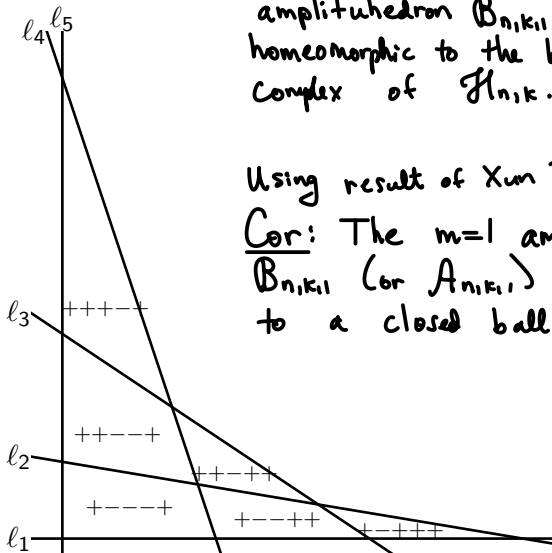 ℓ4 ℓ5
amplituhedron B_{n,k,1}
homeomorphic to the
complex of ℋ_{n,k}.
Using result of Xun
Cor: The m=1
B_{n,k,1} (or A_{n,k,1})
to a closed ball
ℓ3
+++−+
++−−+
ℓ2
++−++
+−−−+
+−−++
+−+++
ℓ1